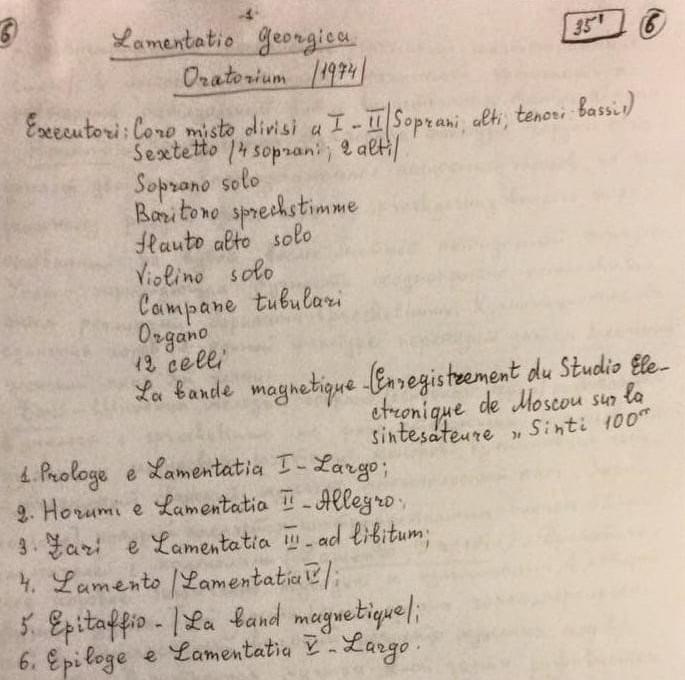 -1-
6
35' 6
Lamentatio Georgica
Oratorium /1974/
Executori: Coro misto divisi a I-II/Soprani, alti, tenori bassi,)
Sextetto /4 soprani; 2 alti/
Soprano solo
Baritono sprechstimme
flauto alto solo
Violino solo
Campane tubulari
Organo
12 celli
La bande magnetique-(Enregistreement du Studio Ele-
ctronique de Moscou sur la
sintesateure „Sinti 100"
1. Prologe e Lamentatia I-Largo;
2. Horumi e Lamentatia II-Allegro;
3. Zari e Lamentatia III-ad libitum;
4. Lamento /Lamentatia IV/;
5. Epitaffio-/La band magnetique/;
6. Epiloge e Lamentatia V-Largo.